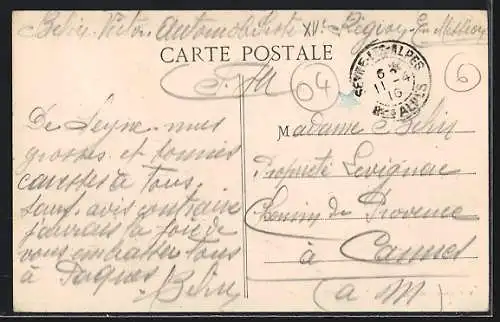 Automobiliste XVe Région
CARTE POSTALE
F. M
04
6
SEYNE-LES-ALPES
6
11 - 4
16
BSES ALPES
De Seyne. mes
grosses et bonnes
caresses à tous
sauf avis contraire
j'aurais la joie de
vous embrasser tous
à Pâques
Madame
Propriété Levignac
Chemin de Provence
à Cannes
(a M)